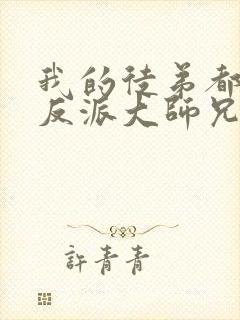 我的徒弟都
反派大師兄
許青青